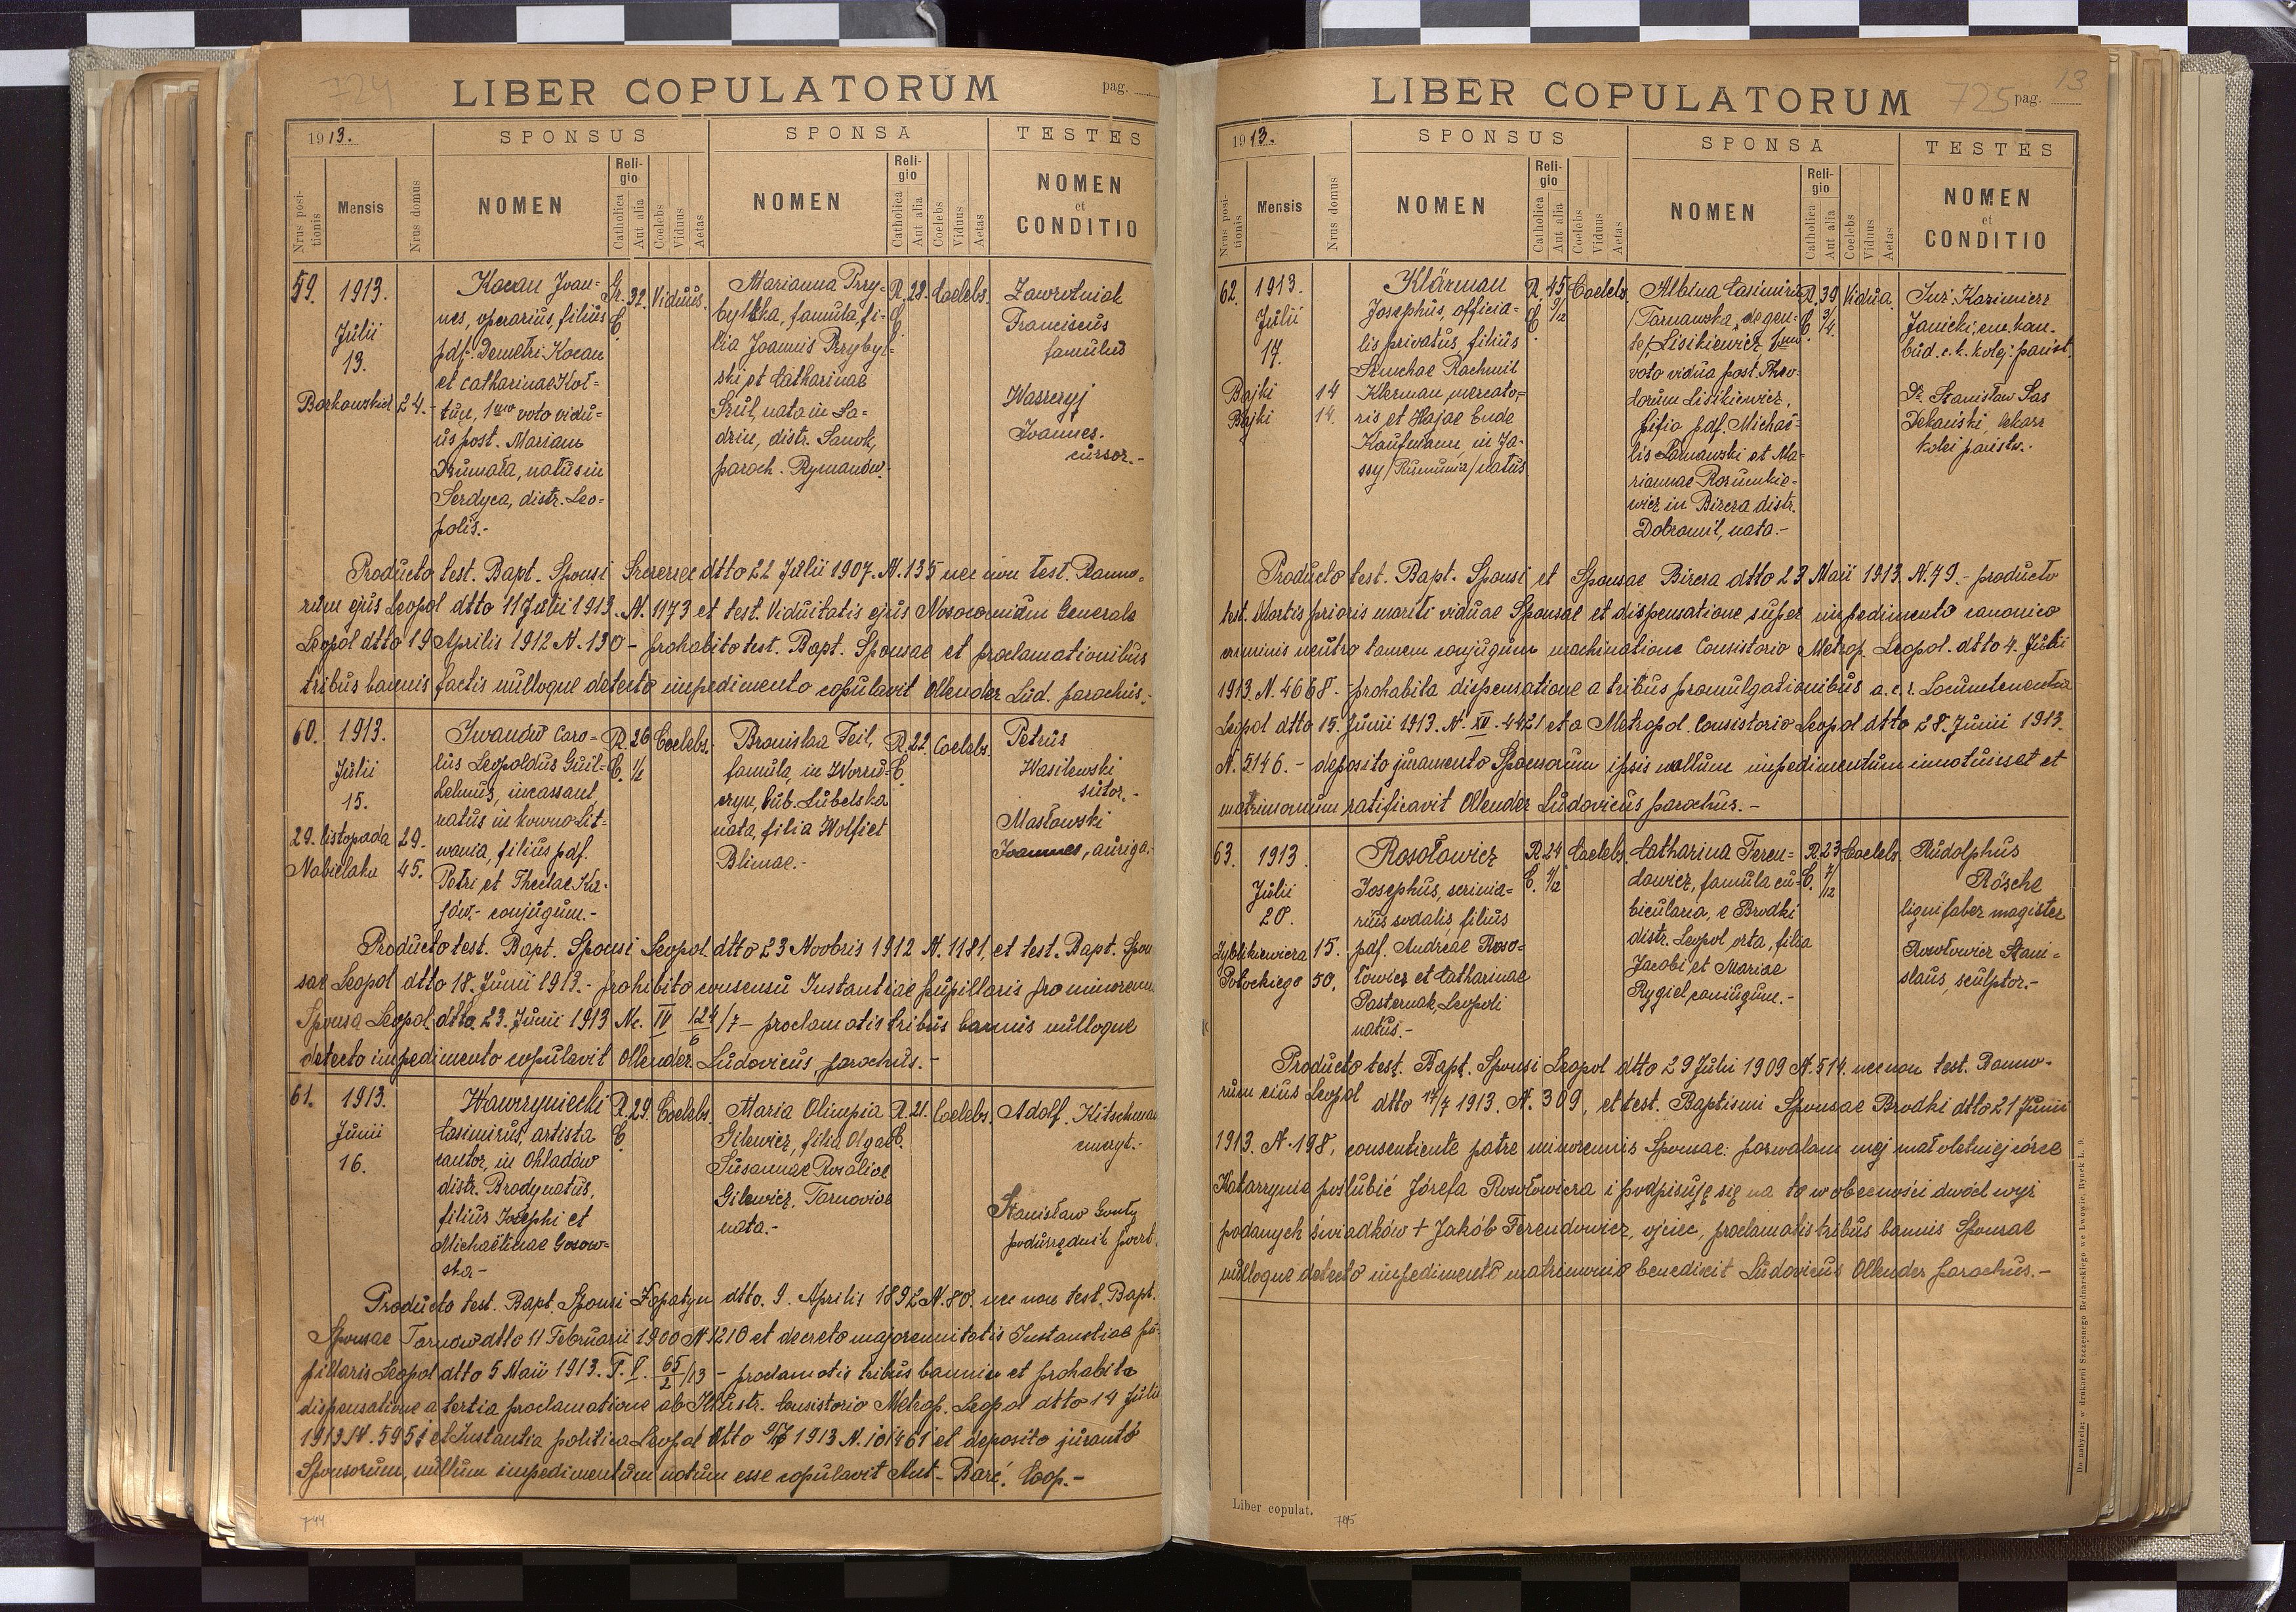 724
LIBER COPULATORUM
pag.
1913.
SPONSUS
SPONSA
TESTES
Nrus positionis
Mensis
Nrus domus
NOMEN
Religio
Catholica
Aut alia
Coelebs
Viduus
Aetas
NOMEN
Religio
Catholica
Aut alia
Coelebs
Viduus
Aetas
NOMEN
et
CONDITIO
59.
1913.
Julii
13.
Borkowskich 24.-
Kocan Joan-
nes, operarius, filius
pdf. Demetri Kocan
et Catharinae Koł-
tun, 1mo voto vidu-
us post. Mariam
natus in
Serdyca, distr. Leo-
polis.-
Gr. 32. Viduus.
C.
Marianna Przy-
bylska, famula, fi-
lia Joannis Przybyl-
ski et Catharinae
Szul, nata in La-
dzin, distr. Sanok,
paroch. Rymanów.
R. 28. Coelebs.
C.
Zawrotniak
Franciscus
famulus
Waszczyj
Joannes.
cursor.-
Producto test. Bapt. Sponsi dtto 22 Julii 1907. N. 135 nec non test. Banno-
rum ejus Leopol dtto 11 Julii 1913. N. 1173 et test. Viduitatis ejus Nosocomium Generale
Leopol dtto 19 Aprilis 1912 N. 130 - prohabito test. Bapt. Sponsae et proclamationibus
tribus bannis factis nulloque detecto impedimento copulavit Ollender Lud. parochus.-
60.
1913.
Julii
15.
29. listopada 29.
Nabielaka 45.
Iwanów Caro-
lus Leopoldus Guil-
helmus, incassant
natus in Kowno-Lit-
wania, filius pdf.
Petri et Theclae Ka-
jów.- conjugum.-
R. 26 Coelebs.
C.
Bronislaa Feil,
famula, in
gub. Lubelska
nata, filia Wolfi et
Blimae.-
R. 22. Coelebs.
C.
Petrus
Wasilewski
sutor.-
Masłowski
Joannes, auriga.-
Producto test. Bapt. Sponsi Leopol. dtto 23 Novbris 1912 N. 1181, et test. Bapt. Spon
sae Leopol dtto 18. Junii 1913.- prohibito consensu Instantiae pupillaris pro minorenni
Sponsa Leopol. dtto. 23. Junii 1913 Nc. IV 124/6/7 - proclamatis tribus bannis nulloque
detecto impedimento copulavit Ollender Ludovicus, parochus.-
61.
1913.
Junii
16.
Wawrzyniecki
Casimirus, artista
cantor, in Ohladów
distr. Brody natus,
filius Josephi et
Michaëlinae Gosow-
ska-
R. 29. Coelebs.
C.
Maria Olimpia
Gilewicz, filia Olgae
Susannae Rosaliae
Gilewicz. Tarnoviae
nata.-
R. 21. Coelebs.
C.
Adolf Kitschman
emeryt.-
Stanisław Gonty
podurzędnik poczt.
Producto test. Bapt. Sponsi Łopatyn dtto. 9. Aprilis 1892 N. 80. nec non test. Bapt.
Sponsae Tarnów dtto 11 Februarii 1900 N 1210 et decreto majorennitatis Instantiae pu-
pillaris Leopol dtto 5 Maii 1913. P. V. 65/2/13 - proclamatis tribus bannis et prohabita
dispensatione a tertia proclamatione ab Illustr. Consistorio Metrop. Leopol dtto 14 Julii
1913 N. 5951 et Instantia politica Leopol dtto 1913 N. 101461 et deposito juranto
Sponsorum, nullum impedimentum notum esse copulavit Ant. Barć. Coop.-
744
13
LIBER COPULATORUM
725
pag.
1913.
SPONSUS
SPONSA
TESTES
Nrus positionis
Mensis
Nrus domus
NOMEN
Religio
Catholica
Aut alia
Coelebs
Viduus
Aetas
NOMEN
Religio
Catholica
Aut alia
Coelebs
Viduus
Aetas
NOMEN
et
CONDITIO
62.
1913.
Julii
17.
Bajki 14
Bajki 14.
Klärman
Josephus, officia-
lis privatus filius
Szmchae Rachmil
Klerman mercato-
ris et Hajae Ende
Kaufmann, in Ja-
ssy /Rumunia/ natus
R. 45 Coelebs.
C. 9/12
Albina Casimira
/Tarnawska, de gen-
te/ Lisikiewicz, 1mo
voto vidua post. Theo-
dorum Lisikiewicz,
filia pdf. Michae-
lis Tarnawski et Ma-
riannae Rozumkie-
wicz in Bircza distr.
Dobromil, nata.-
R. 39 Vidua.
C. 3/4.
Inż. Kazimierz
Janicki,
bud. c. k. kolej. państ.
Dr. Stanisław Sas
Dekański, lekarz
kolei państw.
Producto test. Bapt. Sponsi et Sponsae Bircza dtto 23 Maii 1913. N. 49.- producto
test. Mortis prioris mariti viduae Sponsae et dispensatione super impedimento canonico
criminis neutro tamen conjugum machinatione Consistorio Metrop. Leopol. dtto 4. Julii
1913. N. 4668.- prohabita dispensatione a tribus promulgationibus a. c. r. Locumtenentia
Leopol dtto 15. Junii 1913. N. XII. 4421 et a Metropol. Consistorio Leopol dtto 28. Junii 1913.
N. 5146.- deposito juramento Sponsorum ipsis nullum impedimentum innotuisset et
matrimonium ratificavit Ollender Ludovicus parochus.-
63.
1913.
Julii
20.
Zyblikiewicza 15.
Potockiego 50.
Rosołowicz
Josephus, scrinia-
rius sodalis, filius
pdf. Andreae Roso-
łowicz et Catharinae
Pasternak, Leopoli
natus.-
R. 24 Coelebs.
C. 4/12
Catharina Feren-
dowicz, famula cu-
bicularia, e Brodki
distr. Leopol orta, filia
Jacobi et Mariae
Rygiel coniugum.-
R. 23 Coelebs.
C. 7/12
Rudolphus
Rösche
lignifaber magister
Rosołowicz Stani-
slaus, sculptor.-
Producto test. Bapt. Sponsi Leopol dtto 29 Julii 1909 N. 514. nec non test. Banno-
rum eius Leopol dtto 17/7 1913. N. 309, et test. Baptismi Sponsae Brodki dtto 21 Junii
1913. N. 198, consentiente patre minorennis Sponsae: pozwalam mej małoletniej córce
Katarzynie poślubić Józefa Rosołowicza i podpisuję się na to w obecności dwóch wyż
podanych świadków + Jakób Ferendowicz, ojciec, proclamatis tribus bannis Sponsae
nulloque detecto impedimento matrimonio benedixit Ludovicus Ollender parochus.-
Liber copulat.
745
Do nabycia: w drukarni Szczęsnego Bednarskiego we Lwowie, Rynek L. 9.